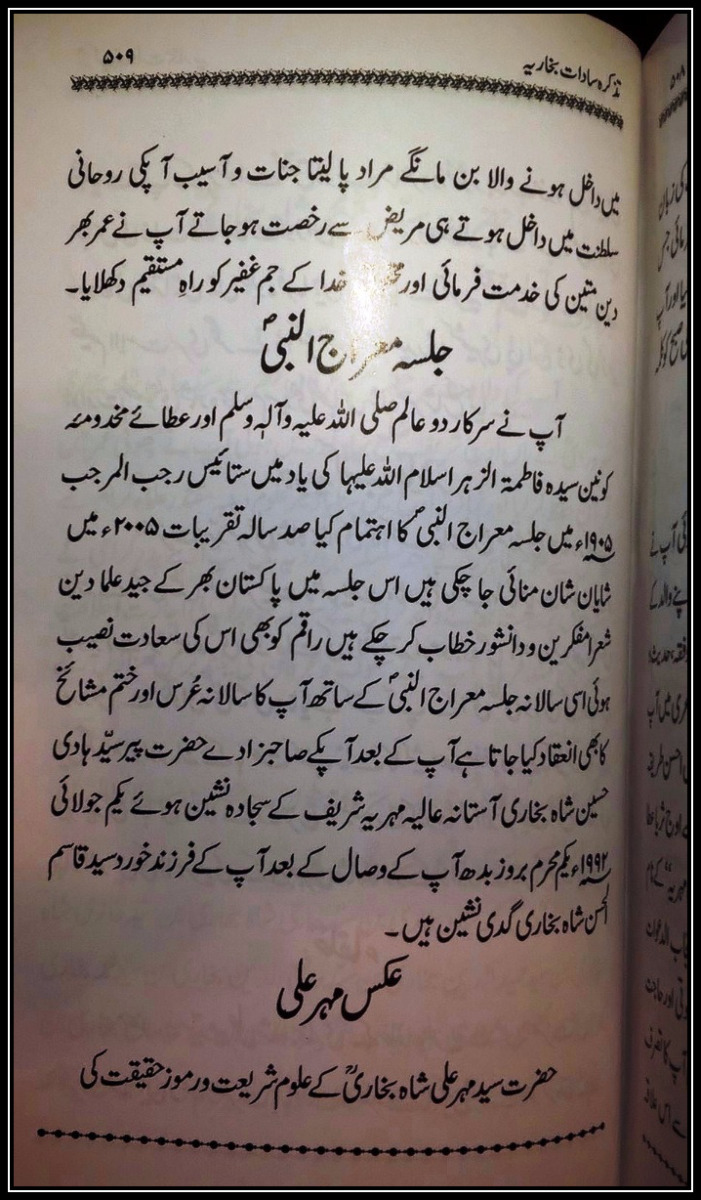 تذکرہ سادات بخاریہ
۵۰۹
میں داخل ہونے والا بن مانگے مراد پا لیتا جنات و آسیب آپکی روحانی
سلطنت میں داخل ہوتے ہی مریض سے رخصت ہو جاتے آپ نے عمر بھر
دین متین کی خدمت فرمائی اور خدا کے جم غفیر کو راہِ مستقیم دکھلایا۔
جلسہ معراج النبیؐ
آپ نے سرکار دو عالم صلی اللہ علیہ وآلہٖ وسلم اور عطائے مخدومئہ
کونین سیدہ فاطمۃ الزہرا سلام اللہ علیہا کی یاد میں ستائیس رجب المرجب
۱۹۰۵ء میں جلسہ معراج النبیؐ کا اہتمام کیا صد سالہ تقریبات ۲۰۰۵ء میں
شایان شان منائی جا چکی ہیں اس جلسہ میں پاکستان بھر کے جید علما دین
شعرا مفکرین و دانشور خطاب کر چکے ہیں راقم کو بھی اس کی سعادت نصیب
ہوئی اسی سالانہ جلسہ معراج النبیؐ کے ساتھ آپ کا سالانہ عُرس اور ختم مشائخ
کا بھی انعقاد کیا جاتا ہے آپ کے بعد آپکے صاحبزادے حضرت پیر سیّد ہادی
حسین شاہ بخاری آستانہ عالیہ مہریہ شریف کے سجادہ نشین ہوئے یکم جولائی
۱۹۹۲ء یکم محرم بروز بدھ آپ کے وصال کے بعد آپ کے فرزند خورد سید قاسم
الحسن شاہ بخاری گدی نشین ہیں۔
عکس مہر علی
حضرت سید مہر علی شاہ بخاریؒ کے علوم شریعت و رموز حقیقت کی